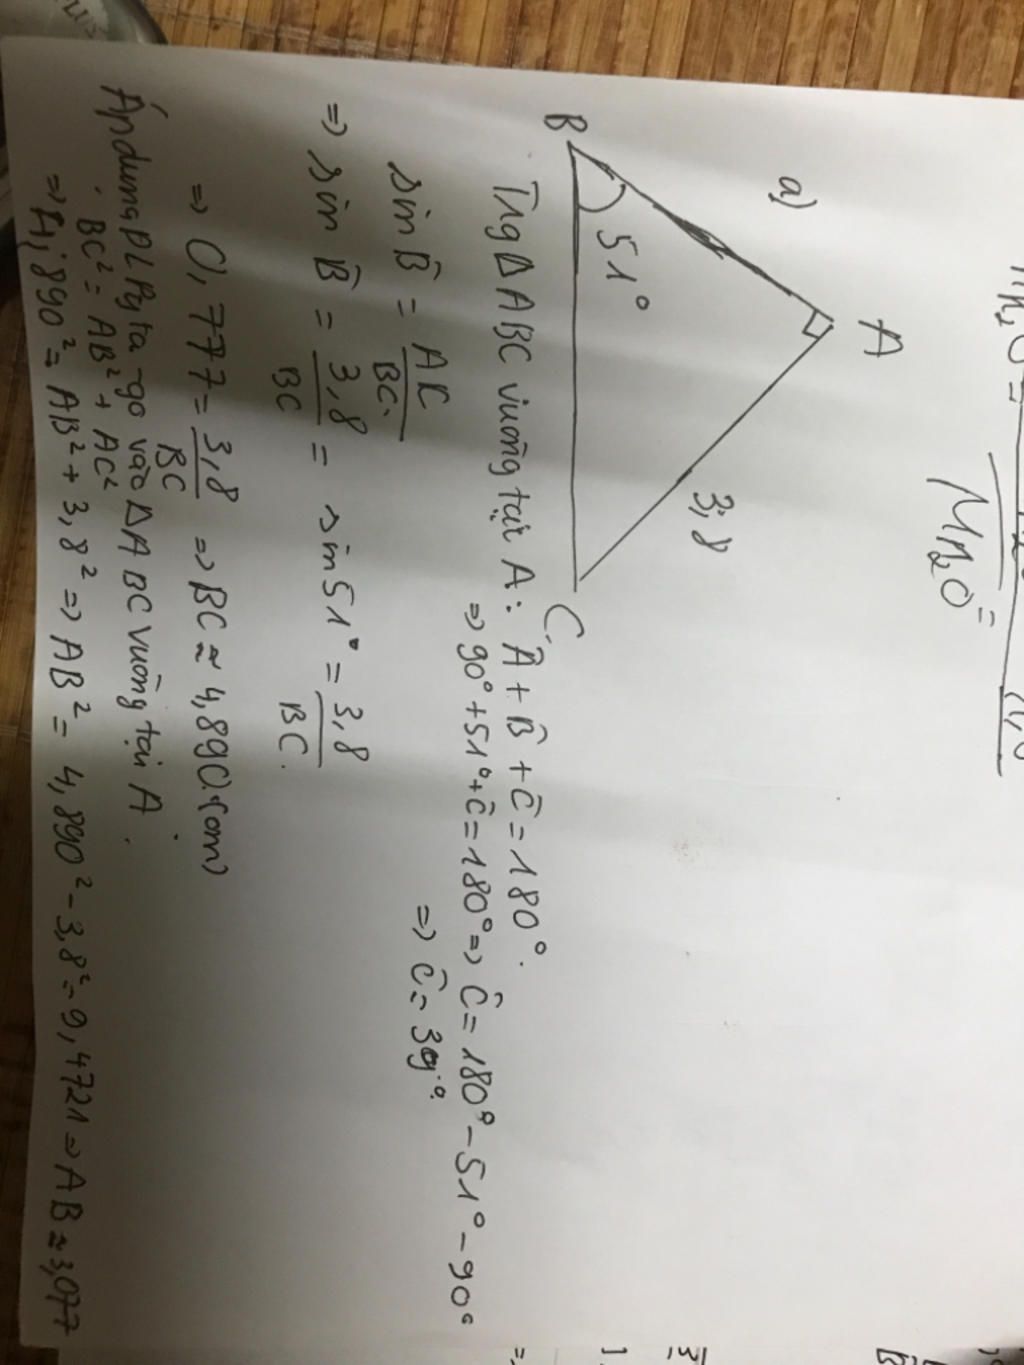 M_{M₂O} =
a)
A
B
C
51°
3,8
Trg ΔABC vuông tại A: Â + B̂ + Ĉ = 180°.
⇒ 90° + 51° + Ĉ = 180° ⇒ Ĉ = 180° - 51° - 90°
⇒ Ĉ = 39°.
sin B̂ = AC/BC.
⇒ sin B̂ = 3,8/BC = sin 51° = 3,8/BC.
⇒ 0,777 = 3,8/BC ⇒ BC ≈ 4,890 (cm)
Áp dụng ĐL Pyta-go vào ΔABC vuông tại A.
BC² = AB² + AC²
⇒ 4,890² = AB² + 3,8² ⇒ AB² = 4,890² - 3,8² = 9,4721 ⇒ AB ≈ 3,077